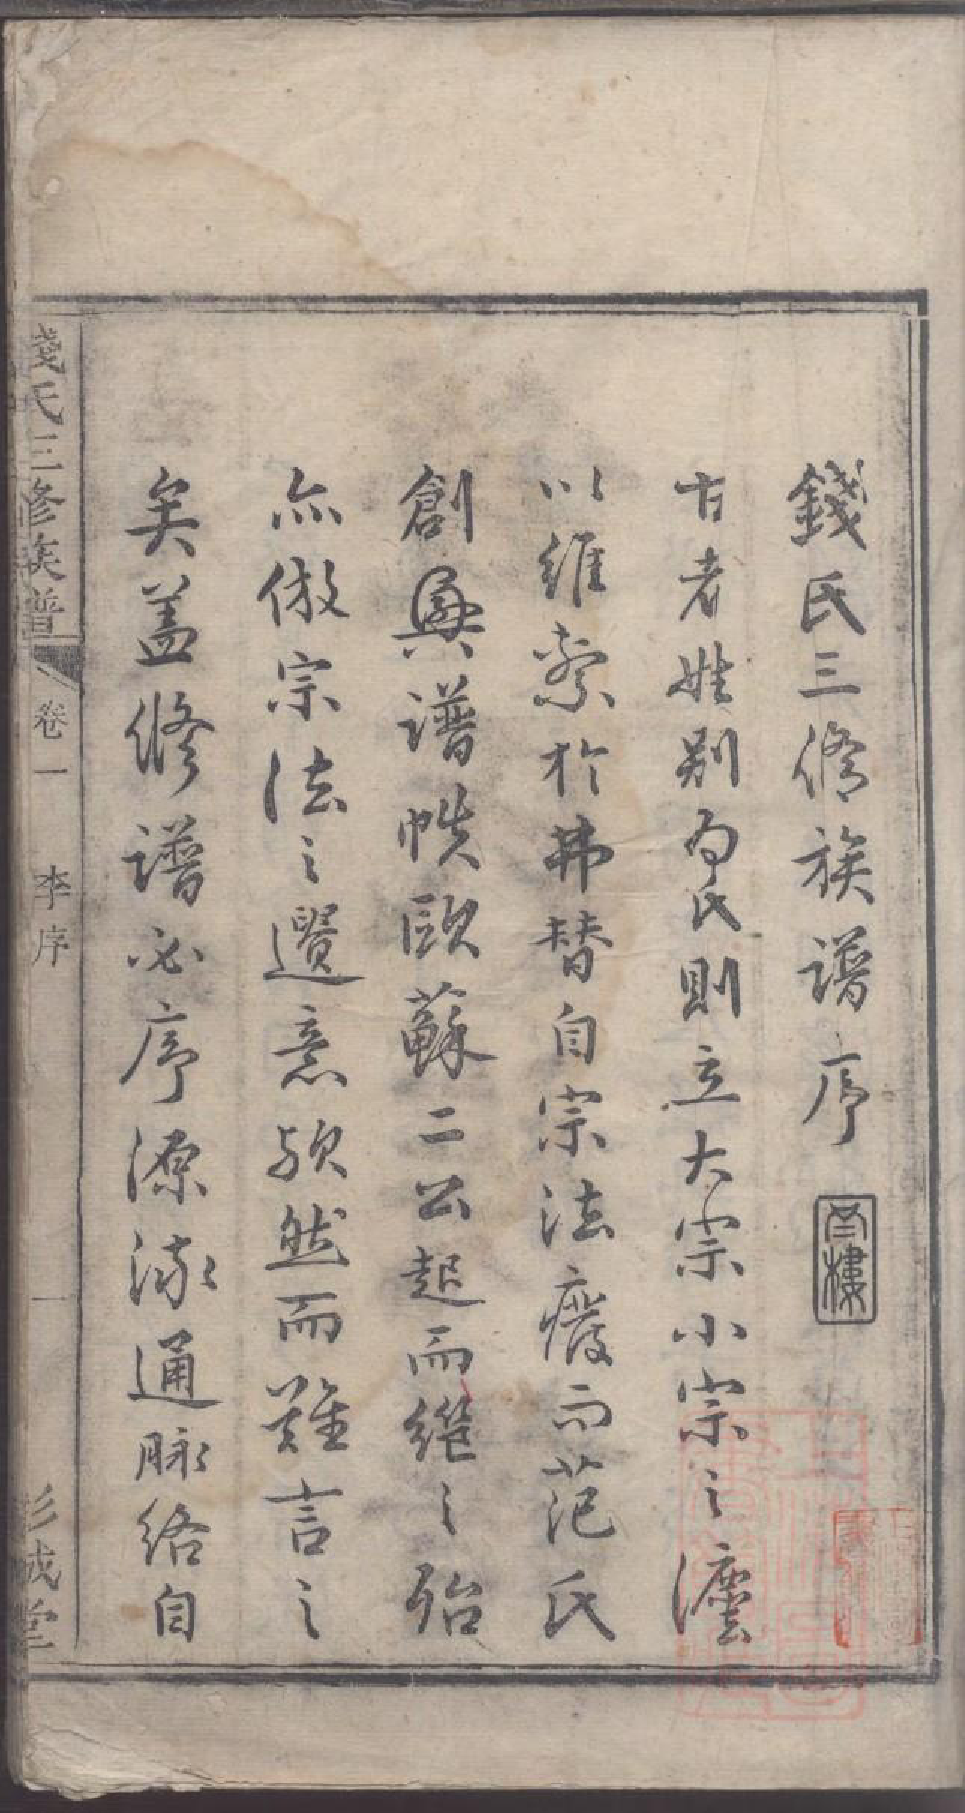 錢氏三修族譜序
古者姓別為氏則立大宗小宗之灋
以維繫於弗替自宗法廢而范氏
創興譜帙歐蘇二公起而繼之殆
亦倣宗法之遺意歟然而難言之
矣盖修譜必序源流通脉絡自
錢氏三修族譜
卷一
李序
一
彭城堂